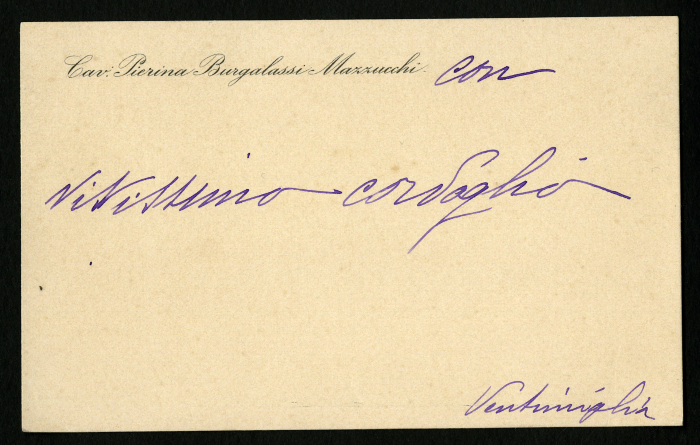 Cav. Pierina Burgalassi Mazzucchi con
vivissimo cordoglio
Ventimiglia